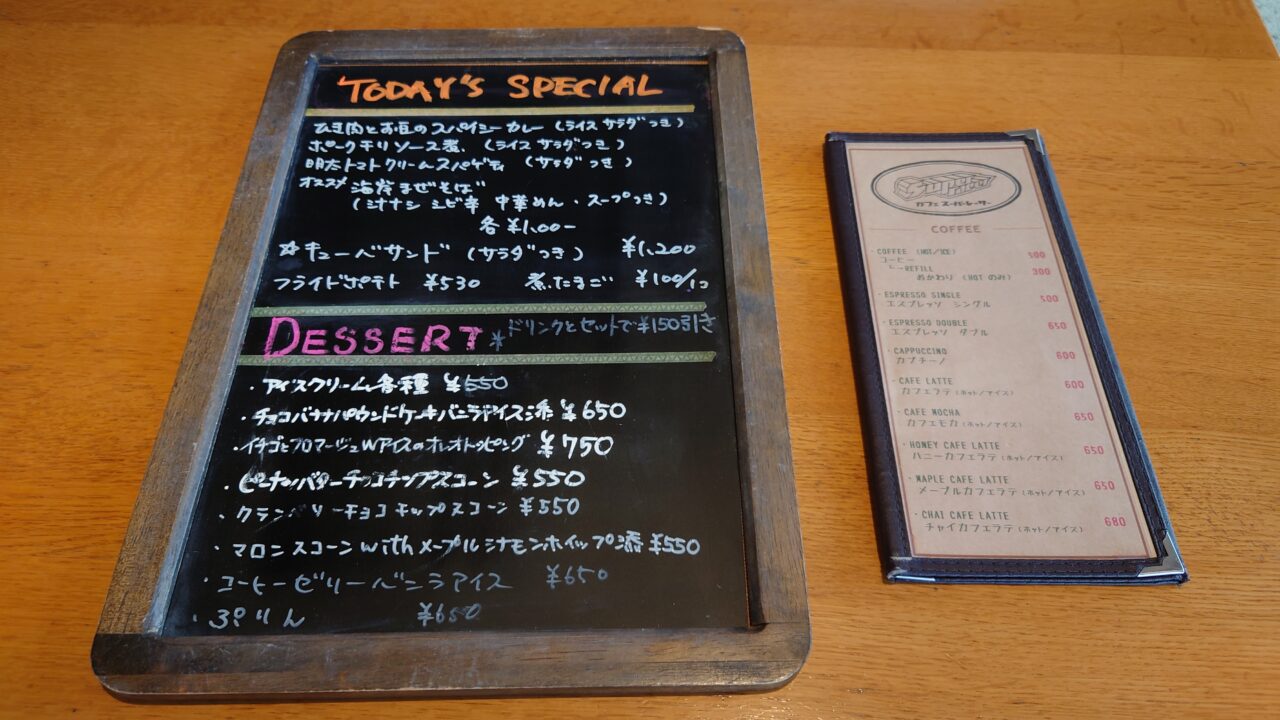 TODAY'S SPECIAL
ひき肉とお豆のスパイシーカレー (ライス サラダつき)
ポークチリソース煮 (ライス サラダつき)
明太トマトクリームスパゲティ (サラダつき)
オススメ 海岸まぜそば
シビ辛 中華めん・スープつき)
各 ¥1,00-
☆キューバサンド (サラダつき) ¥1,200
フライドポテト ¥530 煮たまご ¥100/1コ
DESSERT *ドリンクとセットで¥150引き
・アイスクリーム各種 ¥550
・チョコバナナパウンドケーキバニラアイス添 ¥650
・イチゴとフロマージュWアイスのオレオトッピング ¥750
・ピーナッツバターチョコチップスコーン ¥550
・クランベリーチョコチップスコーン ¥550
・マロンスコーンwithメープルシナモンホイップ添 ¥550
・コーヒーゼリーバニラアイス ¥650
・ぷりん ¥650
カフェ スーパーレーサー
COFFEE
・COFFEE (HOT/ICE) 500
コーヒー
REFILL 300
おかわり (HOT のみ)
・ESPRESSO SINGLE 500
エスプレッソ シングル
・ESPRESSO DOUBLE 650
エスプレッソ ダブル
・CAPPUCCINO 600
カプチーノ
・CAFE LATTE 600
カフェラテ (ホット/アイス)
・CAFE MOCHA 650
カフェモカ (ホット/アイス)
・HONEY CAFE LATTE 650
ハニーカフェラテ (ホット/アイス)
・MAPLE CAFE LATTE 650
メープルカフェラテ (ホット/アイス)
・CHAI CAFE LATTE 680
チャイカフェラテ (ホット/アイス)